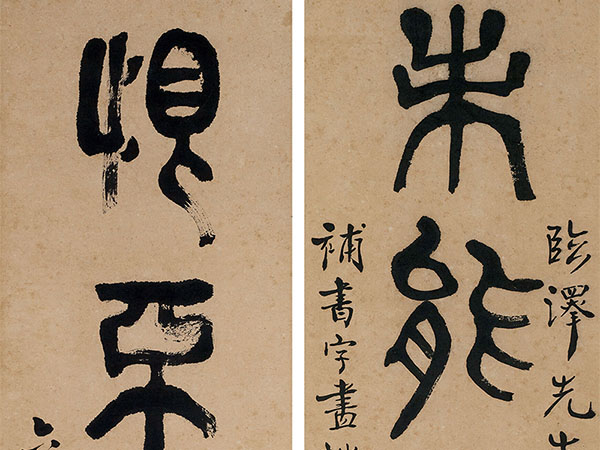 臨澤先生
未能
補書字畫
恨不